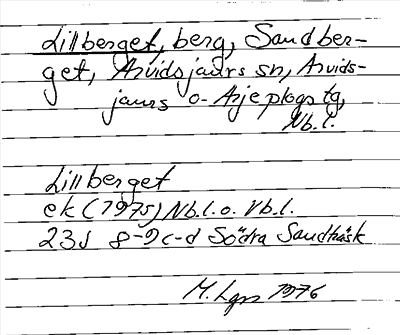 Lillberget, berg, Sandber-
get, Arvidsjaurs sn, Arvids-
jaurs o. Arjeplogs tg,
Nb.l.
Lillberget
ek (1975) Nb.l. o. Vb.l.
23J 8-9 c-d Södra Sandträsk
M. Lgn 1976